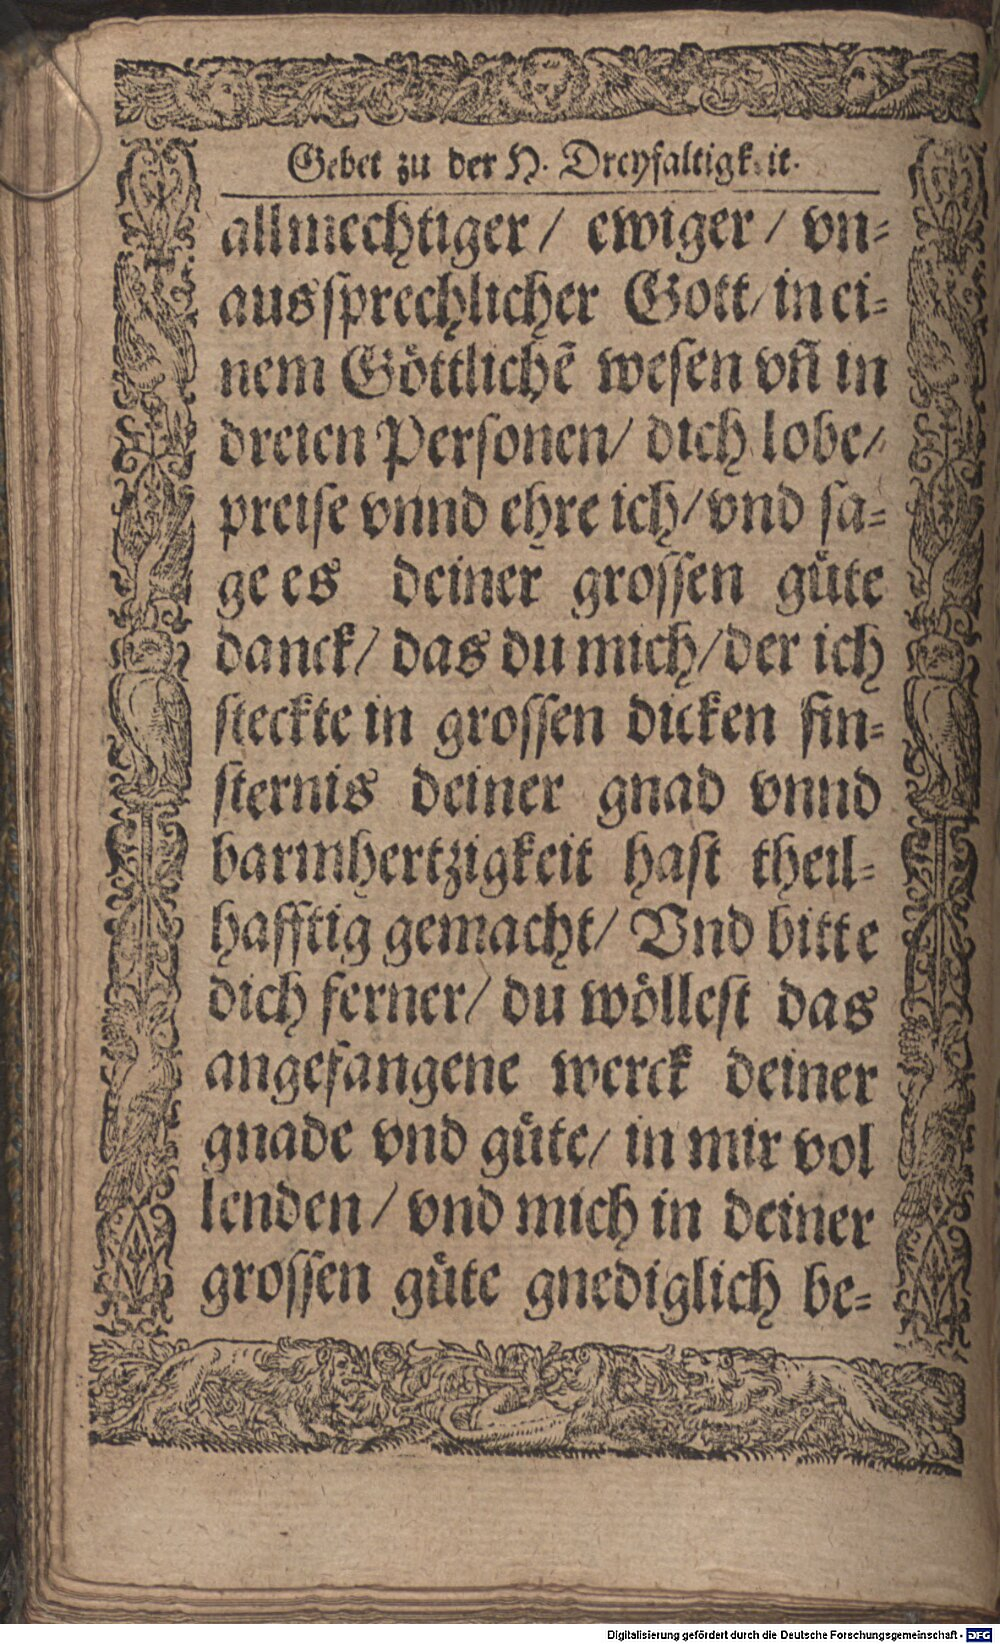 Gebet zu der H. Dreyfaltigkeit.
allmechtiger / ewiger / vn-
aussprechlicher Gott / in ei-
nem Göttlichẽ wesen vñ in
dreien Personen / dich lobe /
preise vnnd ehre ich / vnd sa-
ge es deiner grossen güte
danck / das du mich / der ich
steckte in grossen dicken fin-
sternis deiner gnad vnnd
barmhertzigkeit hast theil-
hafftig gemacht / Vnd bitte
dich ferner / du wöllest das
angefangene werck deiner
gnade vnd güte / in mir vol
lenden / vnd mich in deiner
grossen güte gnediglich be-
Digitalisierung gefördert durch die Deutsche Forschungsgemeinschaft - DFG